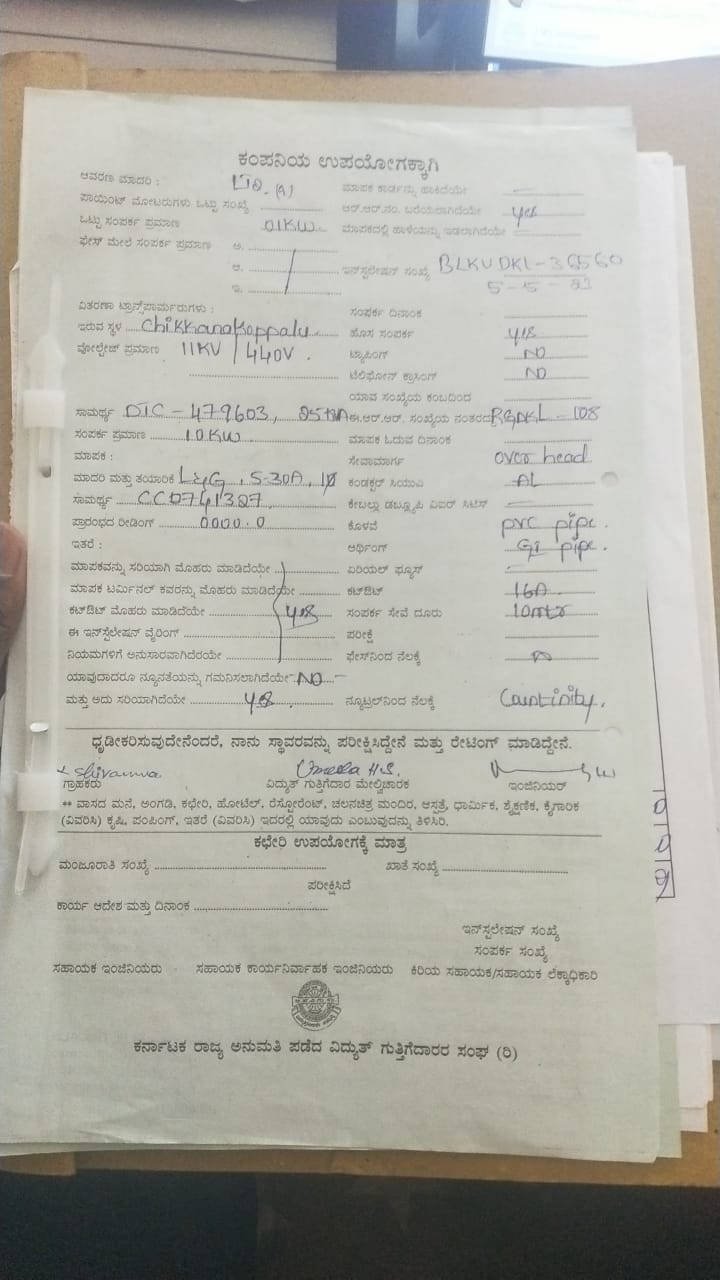 ಕಂಪನಿಯ ಉಪಯೋಗಕ್ಕಾಗಿ
ಆವರಣ ಮಾದರಿ : (A) ಮಾಪಕ ಕಾರ್ಡನ್ನು ಹಾಕಿದೆಯೇ
ಪಾಯಿಂಟ್ ಮೋಟರುಗಳು ಒಟ್ಟು ಸಂಖ್ಯೆ ಆರ್.ಆರ್.ನಂ. ಬರೆಯಲಾಗಿದೆಯೇ yes
ಒಟ್ಟು ಸಂಪರ್ಕ ಪ್ರಮಾಣ 01KW ಮಾಪಕದಲ್ಲಿ ಹಾಳೆಯನ್ನು ಇಡಲಾಗಿದೆಯೇ
ಫೇಸ್ ಮೇಲೆ ಸಂಪರ್ಕ ಪ್ರಮಾಣ ಅ.
ಆ. ಇನ್‌ಸ್ಟಲೇಷನ್ ಸಂಖ್ಯೆ BLKUDKL-36560
ಇ. 5-5-
ವಿತರಣಾ ಟ್ರಾನ್ಸ್‌ಫಾರ್ಮರುಗಳು : ಸಂಪರ್ಕ ದಿನಾಂಕ
ಇರುವ ಸ್ಥಳ Chikkanakoppalu ಹೊಸ ಸಂಪರ್ಕ yes
ವೋಲ್ಟೇಜ್ ಪ್ರಮಾಣ 11KV / 440V. ಟ್ಯಾಪಿಂಗ್ NO
ಟೆಲಿಫೋನ್ ಕ್ರಾಸಿಂಗ್ NO
ಯಾವ ಸಂಖ್ಯೆಯ ಕಂಬದಿಂದ
ಸಾಮರ್ಥ್ಯ DTC-479603, 25 ಈ.ಆರ್.ಆರ್. ಸಂಖ್ಯೆಯ ನಂತರದ RGDKL-108
ಸಂಪರ್ಕ ಪ್ರಮಾಣ 10KW ಮಾಪಕ ಓದುವ ದಿನಾಂಕ
ಮಾಪಕ : ಸೇವಾಮಾರ್ಗ over head
ಮಾದರಿ ಮತ್ತು ತಯಾರಿಕೆ L&G, 5-30A, 1φ ಕಂಡಕ್ಟರ್ ಸಿಯುವಿ AL
ಸಾಮರ್ಥ್ಯ CC0741327 ಕೇಬಲ್ಲು ಡಬ್ಲ್ಯೂಪಿ ಏಐರ್ ಸಿಟಿಸ್
ಪ್ರಾರಂಭದ ರೀಡಿಂಗ್ 0000.0 ಕೊಳವೆ pvc pipe.
ಇತರೆ : ಅರ್ಥಿಂಗ್ GI pipe.
ಮಾಪಕವನ್ನು ಸರಿಯಾಗಿ ಮೊಹರು ಮಾಡಿದೆಯೇ ಏರಿಯಲ್ ಫ್ಯೂಸ್
ಮಾಪಕ ಟರ್ಮಿನಲ್ ಕವರನ್ನು ಮೊಹರು ಮಾಡಿದೆಯೇ ಕಟ್‌ಔಟ್ 16A
ಕಟ್‌ಔಟ್ ಮೊಹರು ಮಾಡಿದೆಯೇ yes ಸಂಪರ್ಕ ಸೇವೆ ದೂರು 10mtr
ಈ ಇನ್‌ಸ್ಟಲೇಷನ್ ವೈರಿಂಗ್ ಪರೀಕ್ಷೆ
ನಿಯಮಗಳಿಗೆ ಅನುಸಾರವಾಗಿದೆರೆಯೇ ಫೇಸ್‌ನಿಂದ ನೆಲಕ್ಕೆ
ಯಾವುದಾದರೂ ನ್ಯೂನತೆಯನ್ನು ಗಮನಿಸಲಾಗಿದೆಯೇ NO
ಮತ್ತು ಅದು ಸರಿಯಾಗಿದೆಯೇ yes. ನ್ಯೂಟ್ರಲ್‌ನಿಂದ ನೆಲಕ್ಕೆ Countinity.
ಧೃಡೀಕರಿಸುವುದೇನೆಂದರೆ, ನಾನು ಸ್ಥಾವರವನ್ನು ಪರೀಕ್ಷಿಸಿದ್ದೇನೆ ಮತ್ತು ರೇಟಿಂಗ್ ಮಾಡಿದ್ದೇನೆ.
x Shivanna Umesha H.S.
ಗ್ರಾಹಕರು ವಿದ್ಯುತ್ ಗುತ್ತಿಗೆದಾರ ಮೇಲ್ವಿಚಾರಕ ಇಂಜಿನಿಯರ್
** ವಾಸದ ಮನೆ, ಅಂಗಡಿ, ಕಛೇರಿ, ಹೋಟೆಲ್, ರೆಸ್ಟೋರೆಂಟ್, ಚಲನಚಿತ್ರ ಮಂದಿರ, ಆಸ್ಪತ್ರೆ, ಧಾರ್ಮಿಕ, ಶೈಕ್ಷಣಿಕ, ಕೈಗಾರಿಕ
(ವಿವರಿಸಿ) ಕೃಷಿ, ಪಂಪಿಂಗ್, ಇತರೆ (ವಿವರಿಸಿ) ಇದರಲ್ಲಿ ಯಾವುದು ಎಂಬುವುದನ್ನು ತಿಳಿಸಿರಿ.
ಕಛೇರಿ ಉಪಯೋಗಕ್ಕೆ ಮಾತ್ರ
ಮಂಜೂರಾತಿ ಸಂಖ್ಯೆ ಖಾತೆ ಸಂಖ್ಯೆ
ಪರೀಕ್ಷಿಸಿದೆ
ಕಾರ್ಯ ಆದೇಶ ಮತ್ತು ದಿನಾಂಕ
ಇನ್‌ಸ್ಟಲೇಷನ್ ಸಂಖ್ಯೆ
ಸಂಪರ್ಕ ಸಂಖ್ಯೆ
ಸಹಾಯಕ ಇಂಜಿನಿಯರು ಸಹಾಯಕ ಕಾರ್ಯನಿರ್ವಾಹಕ ಇಂಜಿನಿಯರು ಕಿರಿಯ ಸಹಾಯಕ/ಸಹಾಯಕ ಲೆಕ್ಕಾಧಿಕಾರಿ
ಕರ್ನಾಟಕ ರಾಜ್ಯ ಅನುಮತಿ ಪಡೆದ ವಿದ್ಯುತ್ ಗುತ್ತಿಗೆದಾರರ ಸಂಘ (ರಿ)